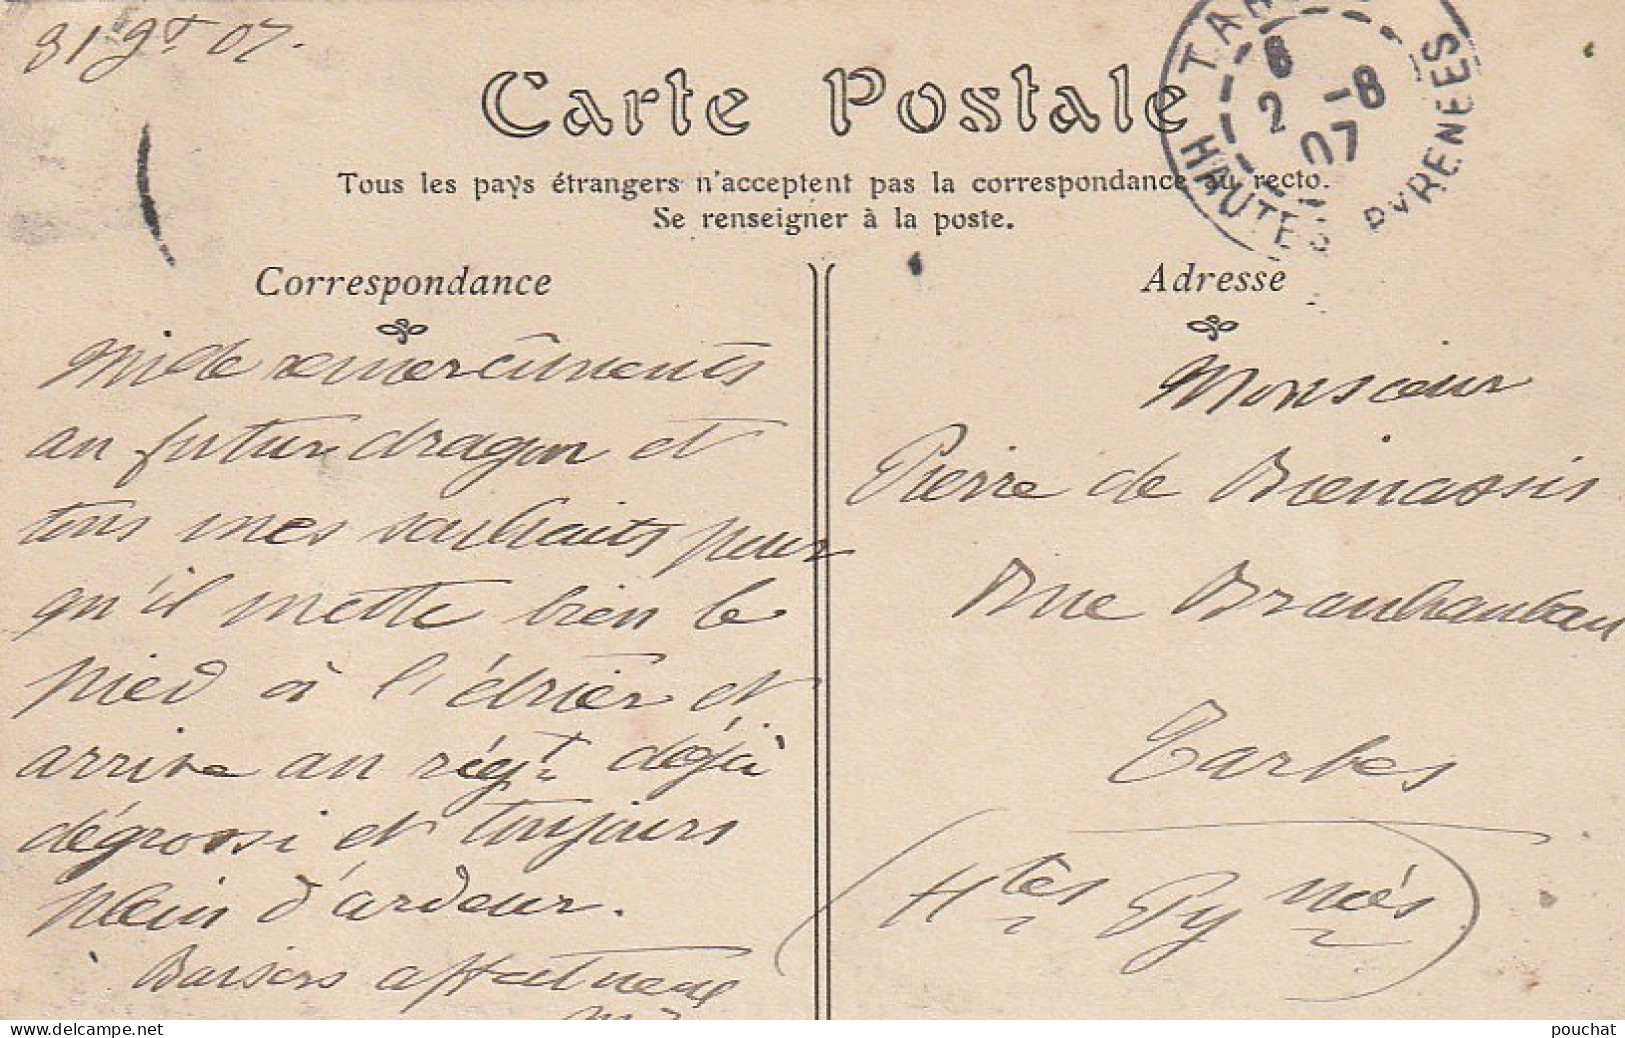 31 Jt 07.
Carte Postale
Tous les pays étrangers n'acceptent pas la correspondance au recto.
Se renseigner à la poste.
TARBES
6
2 -8
07
HAUTES PYRENEES
Correspondance
Mille remerciements
au futur dragon et
tous mes souhaits pour
qu'il mette bien le
pied à l'étrier et
arrive au régt déjà
dégrossi et toujours
plein d'ardeur.
Baisers affectueux
Adresse
Monsieur
Pierre de Bienassis
Rue Brauhauban
Tarbes
(Htes Pynées)
www.delcampe.net
pouchat